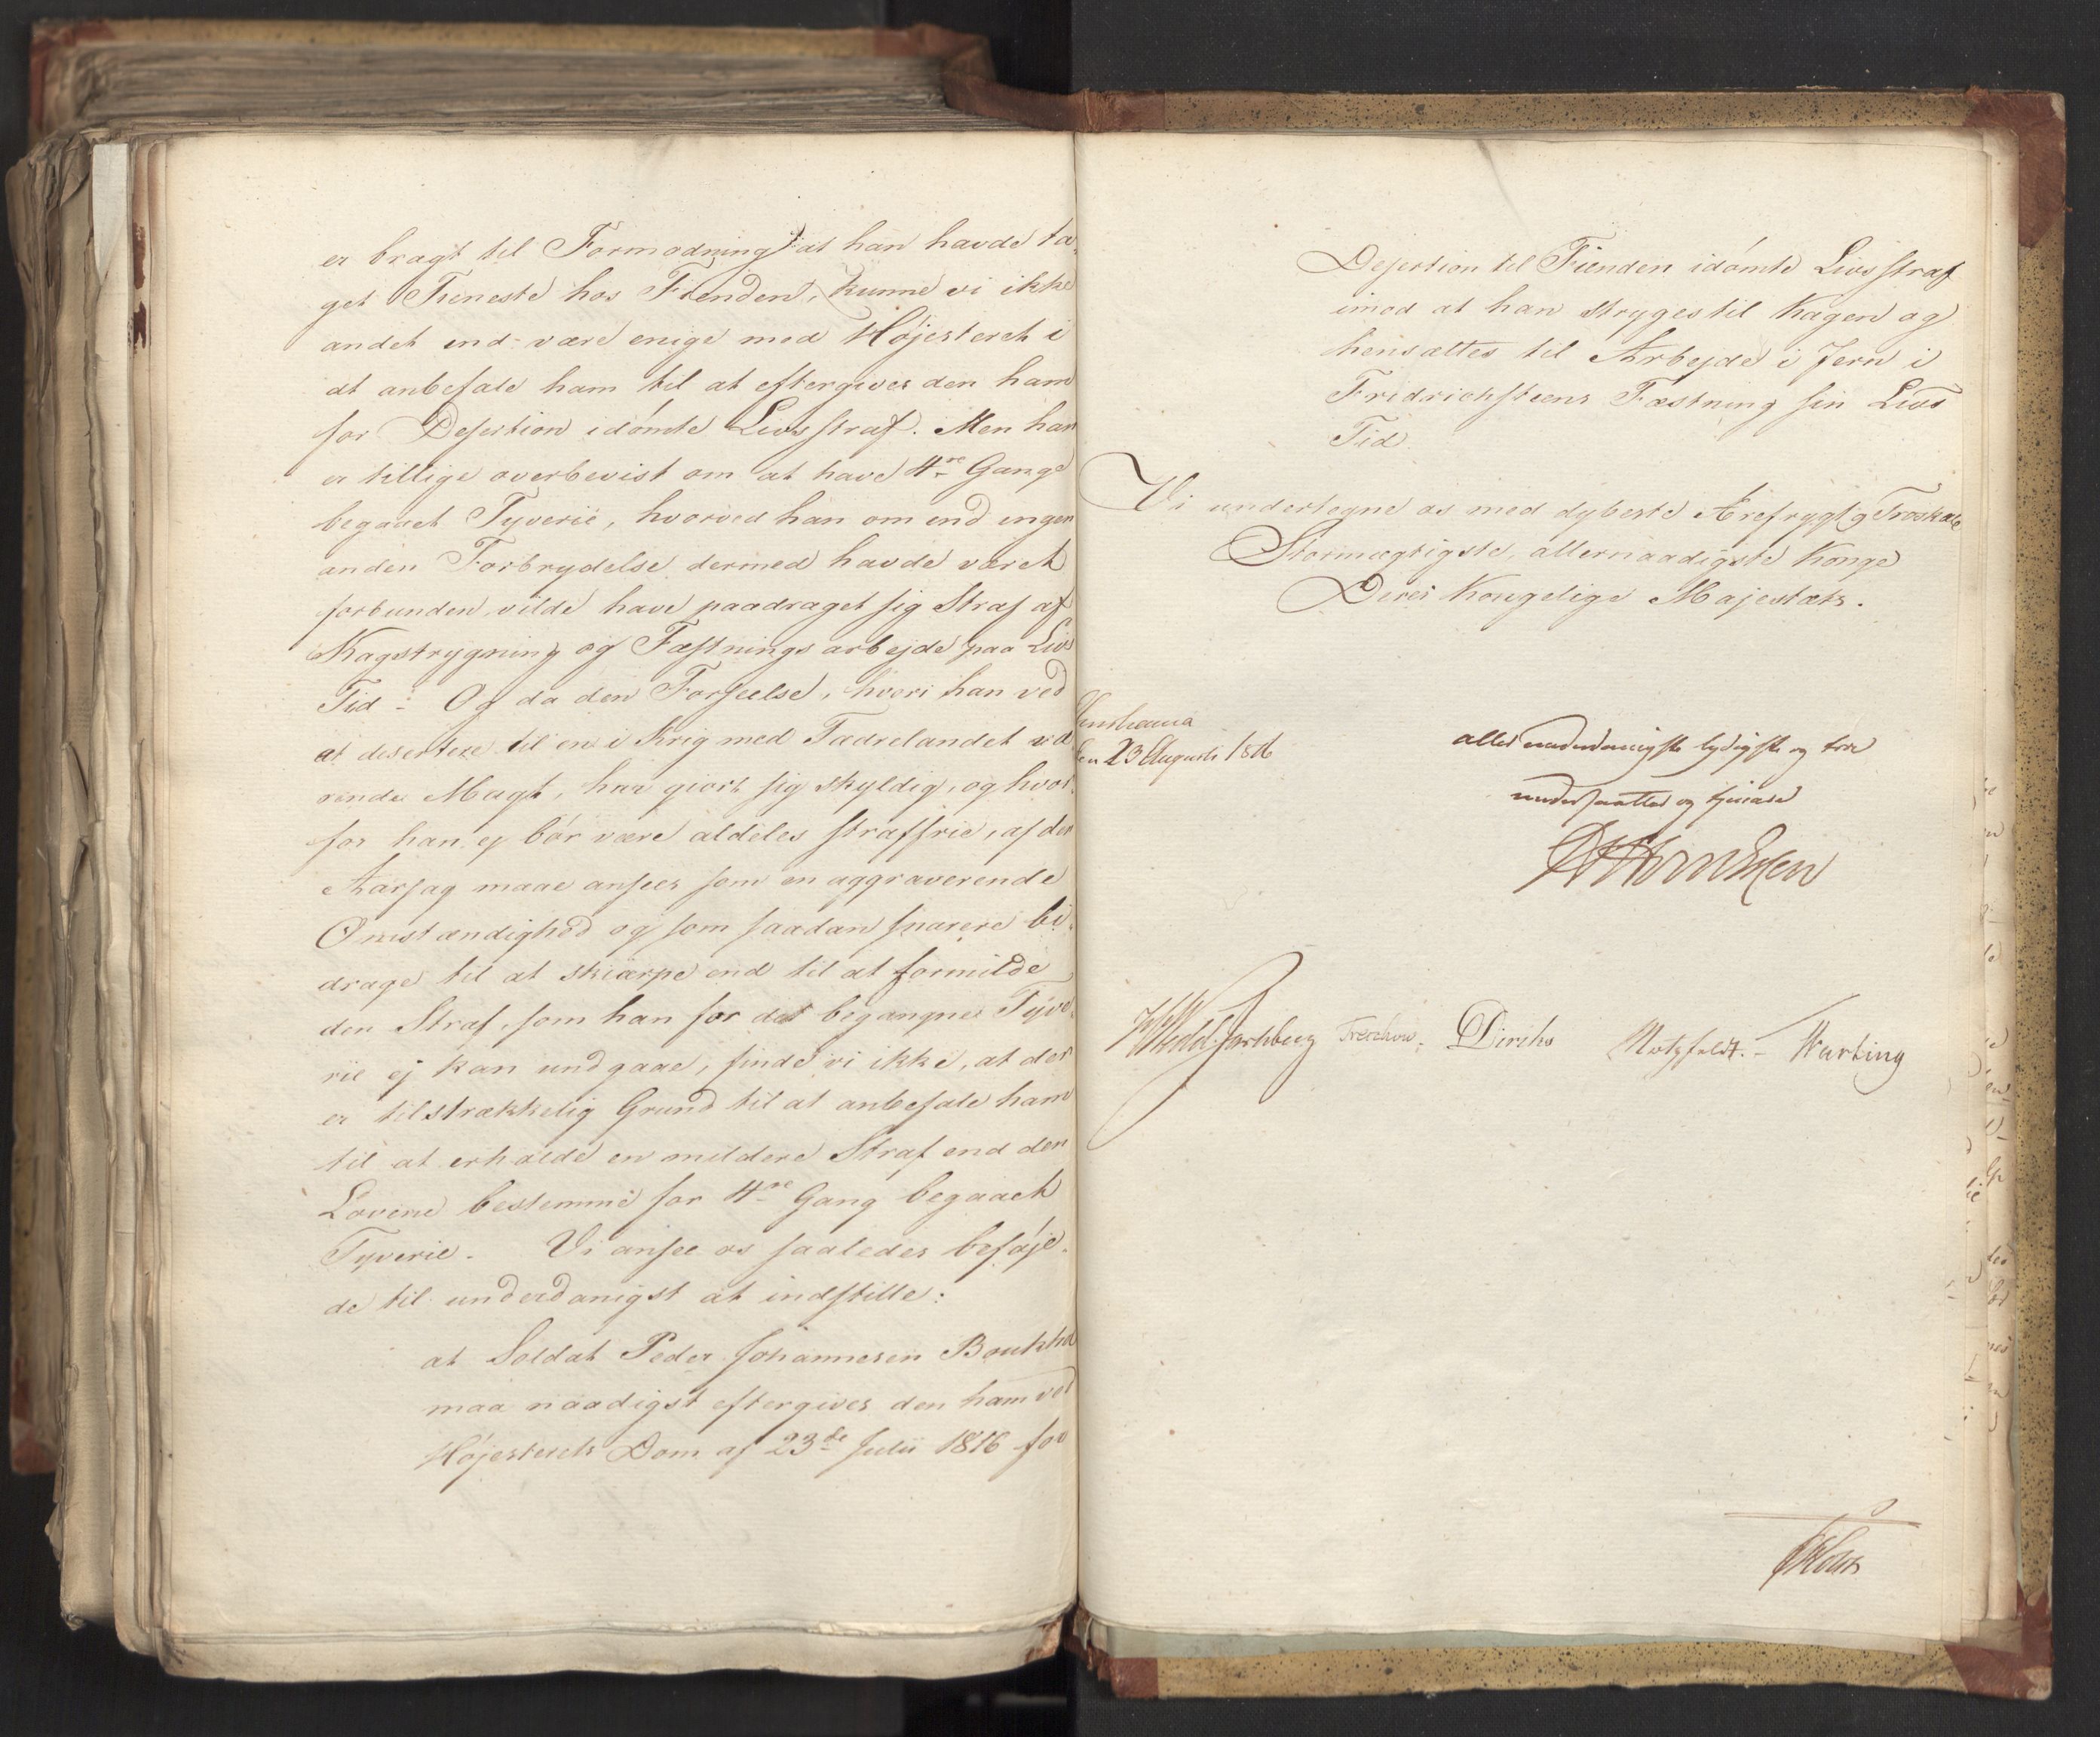 er bragt til Formodning at han havde ta-
get Tieneste hos Fienden, kunne vi ikke
andet end være enige med Højesteret i
at anbefale ham til at eftergives den ham
for Desertion idømte Livsstraf. Men han
er tillige overbevist om at have 4re Gange
begaaet Tyverie, hvorved han om end ingen
anden Forbrydelse dermed havde været
forbunden, vilde have paadraget sig Straf af
Kagstrygning og Fæstningsarbejde paa Livs
Tid - Og da den Forseelse, hvori han ved
at desertere til en i Krig med Fædrelandet væ-
rende Magt, har giort sig skyldig, og hvor-
for han ej bør være aldeles straffrie, af den
Aarsag maae ansees som en aggraverende
Omstændighed og som saadan snarere bi-
drage til at skiærpe end til at formilde
den Straf, som han for det begangne Tyve-
rie ej kan undgaae, finde vi ikke, at der
er tilstrækkelig Grund til at anbefale ham
til at erholde en mildere Straf end den
Lovene bestemme for 4re Gang begaaet
Tyverie. Vi ansee os saaledes beføje-
de til underdanigst at indstille:
at Soldat Peder Johannesen
maa naadigst eftergives den ham ved
Højesterets Dom af 23de Julii 1816 for
Desertion til Fienden idømte Livsstraf
imod at han stryges til Kagen og
hensættes til Arbejde i Jern i
Fridrichsteens Fæstning sin Livs
Tid
Vi undertegne os med dybeste Ærefrygt og Troskab
Stormægtigste, allernaadigste Konge
Deres Kongelige Majestæts.
Christiania
den 23 Augusti 1816
allerunderdanigste lydigste og troe
undersaatter og tjenere
Wedel Jarlsberg Treschow. Diriks Motzfeldt. - Harbing